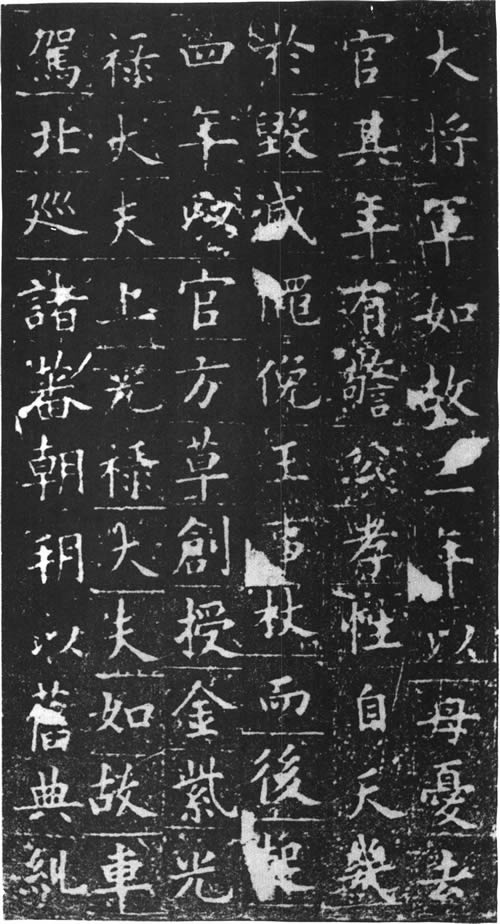 大將軍如故二年以母憂去
官其年有公孝性自天幾
於毀滅黽俛王事杖而後起
四年改官方草創授金紫光
祿大夫上光祿大夫如故車
駕北巡諸蕃朝朔以舊典糺